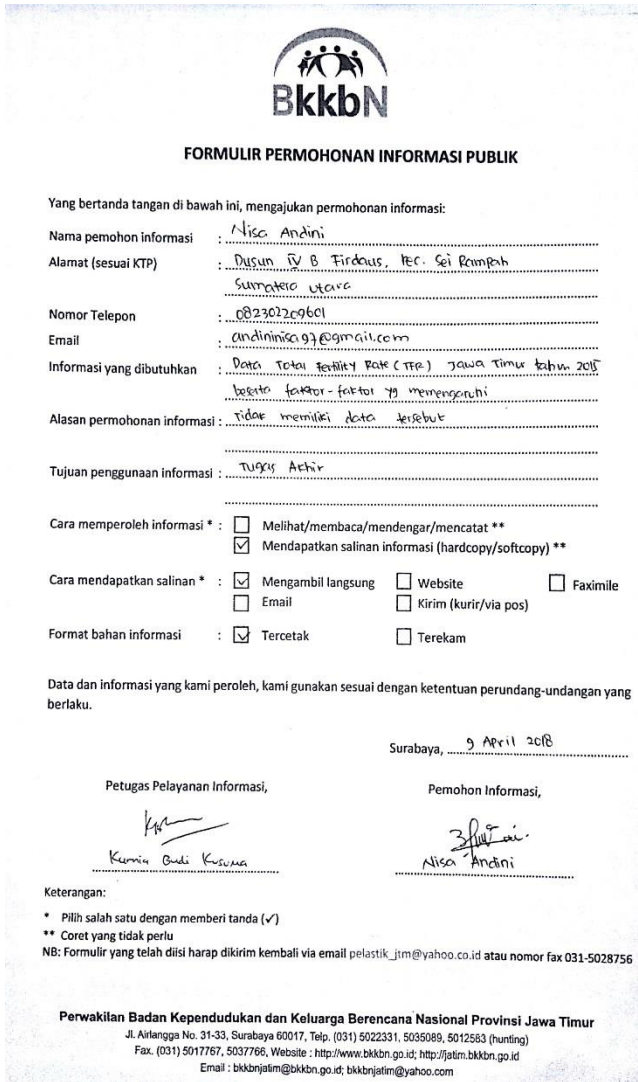 BkkbN
FORMULIR PERMOHONAN INFORMASI PUBLIK
Yang bertanda tangan di bawah ini, mengajukan permohonan informasi:
Nama pemohon informasi : Nisa Andini
Alamat (sesuai KTP) : Dusun IV B Firdaus, Kec. Sei Rampah
Sumatera Utara
Nomor Telepon : 082302209601
Email : andininisa97@gmail.com
Informasi yang dibutuhkan : Data Total Fertility Rate (TFR) Jawa Timur tahun 2015
beserta faktor-faktor yg memengaruhi
Alasan permohonan informasi : Tidak memiliki data tersebut
Tujuan penggunaan informasi : Tugas Akhir
Cara memperoleh informasi * : ☐ Melihat/membaca/mendengar/mencatat **
☑ Mendapatkan salinan informasi (hardcopy/softcopy) **
Cara mendapatkan salinan * : ☑ Mengambil langsung ☐ Website ☐ Faximile
☐ Email ☐ Kirim (kurir/via pos)
Format bahan informasi : ☑ Tercetak ☐ Terekam
Data dan informasi yang kami peroleh, kami gunakan sesuai dengan ketentuan perundang-undangan yang
berlaku.
Surabaya, 9 April 2018
Petugas Pelayanan Informasi, Pemohon Informasi,
Kurnia Budi Kusuma Nisa Andini
Keterangan:
* Pilih salah satu dengan memberi tanda (✓)
** Coret yang tidak perlu
NB: Formulir yang telah diisi harap dikirim kembali via email pelastik_jtm@yahoo.co.id atau nomor fax 031-5028756
Perwakilan Badan Kependudukan dan Keluarga Berencana Nasional Provinsi Jawa Timur
Jl. Airlangga No. 31-33, Surabaya 60017, Telp. (031) 5022331, 5035089, 5012583 (hunting)
Fax. (031) 5017767, 5037766, Website : http://www.bkkbn.go.id; http://jatim.bkkbn.go.id
Email : bkkbnjatim@bkkbn.go.id; bkkbnjatim@yahoo.com